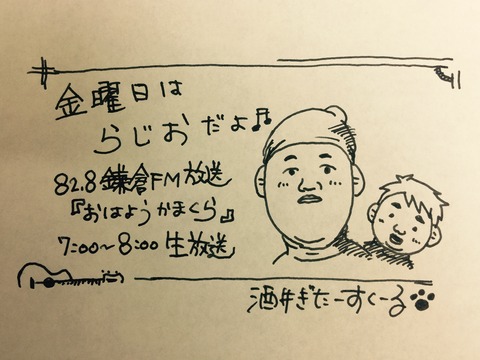 金曜日は
らじおだよ♫
82.8鎌倉FM放送
『おはようかまくら』
7:00〜8:00生放送
酒井ぎたーすくーる